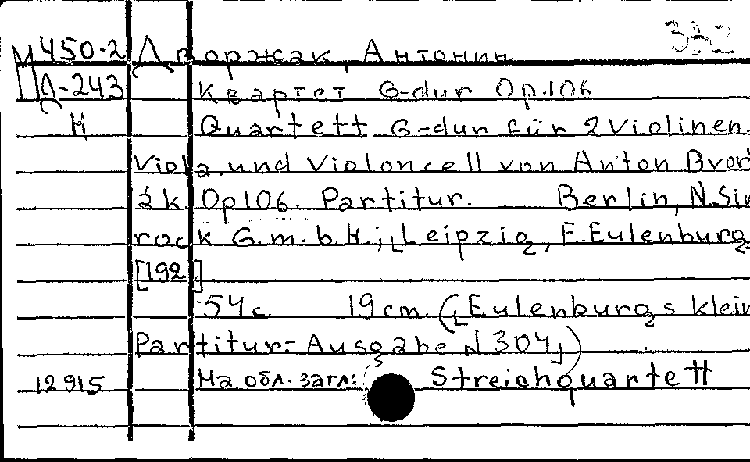 М450-2 Дворжак, Антонин
Д-243 Квартет G-dur Op.106
Н Quartett G-dur für 2 Violinen
Viola und Violoncell von Anton Dvor
žák Op106. Partitur. Berlin, N.Sim
rock G.m.b.H.; Leipzig, E.Eulenburg
[192 ]
54с 19cm (Eulenburgs klein
Partitur-Ausgabe N 304)
12915 На обл. загл: Streichquartett